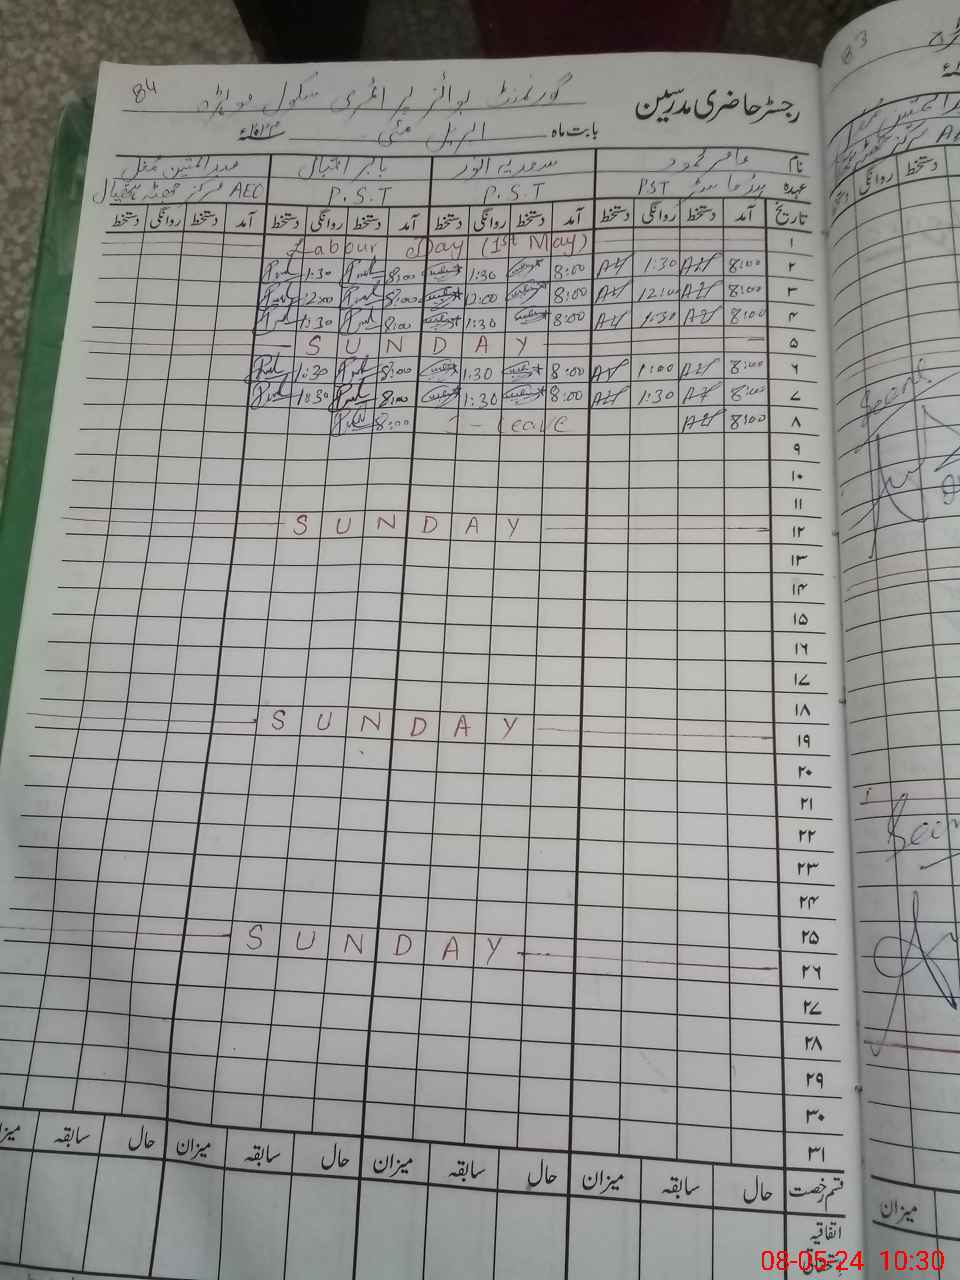 84
رجسٹر حاضری مدرسین
گورنمنٹ بوائز پرائمری سکول
بابت ماہ اپریل مئی
نام عامر محمود سعدیہ انور بابر امتیال عبدالمتین مغل
عہدہ ہیڈماسٹر PST P.S.T P.S.T AEO مرکز
تاریخ آمد دستخط روانگی دستخط آمد دستخط روانگی دستخط آمد دستخط روانگی دستخط آمد دستخط روانگی دستخط
۱ Labour Day (1st May)
۲ 8:00 AH 1:30 AH 8:00 1:30 8:00 1:30
۳ 8:00 AH 12:00 AH 8:00 12:00 8:00 12:00
۴ 8:00 AH 1:30 AH 8:00 1:30 8:00 1:30
۵ SUNDAY
۶ 8:00 AH 1:00 AH 8:00 1:30 8:00 1:30
۷ 8:00 AH 1:30 AH 8:00 1:30 8:00 1:30
۸ 8:00 AH Leave 8:00
۹
۱۰
۱۱
۱۲ SUNDAY
۱۳
۱۴
۱۵
۱۶
۱۷
۱۸
۱۹ SUNDAY
۲۰
۲۱
۲۲
۲۳
۲۴
۲۵
۲۶ SUNDAY
۲۷
۲۸
۲۹
۳۰
۳۱
قسم رخصت حال سابقہ میزان حال سابقہ میزان حال سابقہ میزان حال سابقہ میزان
اتفاقیہ
استحقاقی
83
روانگی دستخط
Seen
Seen
میزان
08-05-24 10:30